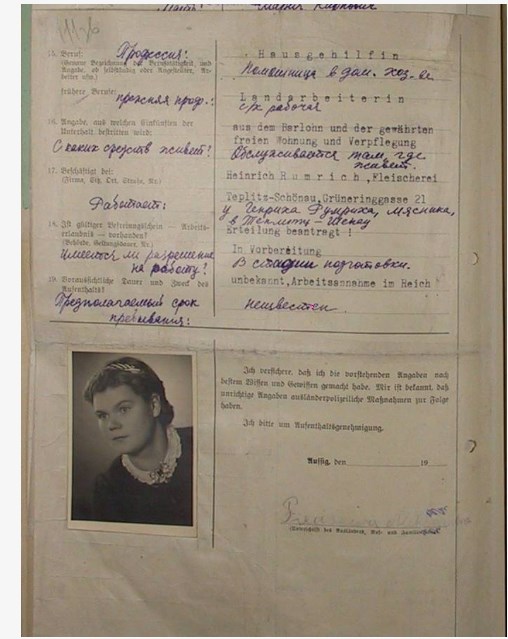 15. Beruf:
(Genaue Bezeichnung der Berufstätigkeit, und
Angabe, ob selbständig oder Angestellter, Ar-
beiter usw.)
Профессия:
Hausgehilfin
Помощница в дом. хоз-ве
frühere Berufe:
прежняя проф.:
Landarbeiterin
с/х рабочая
16. Angabe, aus welchen Einkünften der
Unterhalt bestritten wird:
С каких средств живет?
aus dem Barlohn und der gewährten
freien Wohnung und Verpflegung
Обслуживается там, где
живет.
17. Beschäftigt bei:
(Firma, Sitz, Ort, Straße, Nr.)
Работает:
Heinrich Rumrich, Fleischerei
Teplitz-Schönau, Grüneringgasse 21
у Генриха Румриха, мясника,
в Теплитц-Шенау
18. Ist gültiger Befreiungsschein — Arbeits-
erlaubnis — vorhanden?
(Behörde, Geltungsdauer, Nr.)
Имеется ли разрешение
на работу?
Erteilung beantragt !
In Vorbereitung
В стадии подготовки.
19. Voraussichtliche Dauer und Zweck des
Aufenthalts?
Предполагаемый срок
пребывания:
unbekannt, Arbeitsannahme im Reich
неизвестен.
Ich versichere, daß ich die vorstehenden Angaben nach
bestem Wissen und Gewissen gemacht habe. Mir ist bekannt, daß
unrichtige Angaben ausländerpolizeiliche Maßnahmen zur Folge
haben.
Ich bitte um Aufenthaltsgenehmigung.
Aussig, den 19